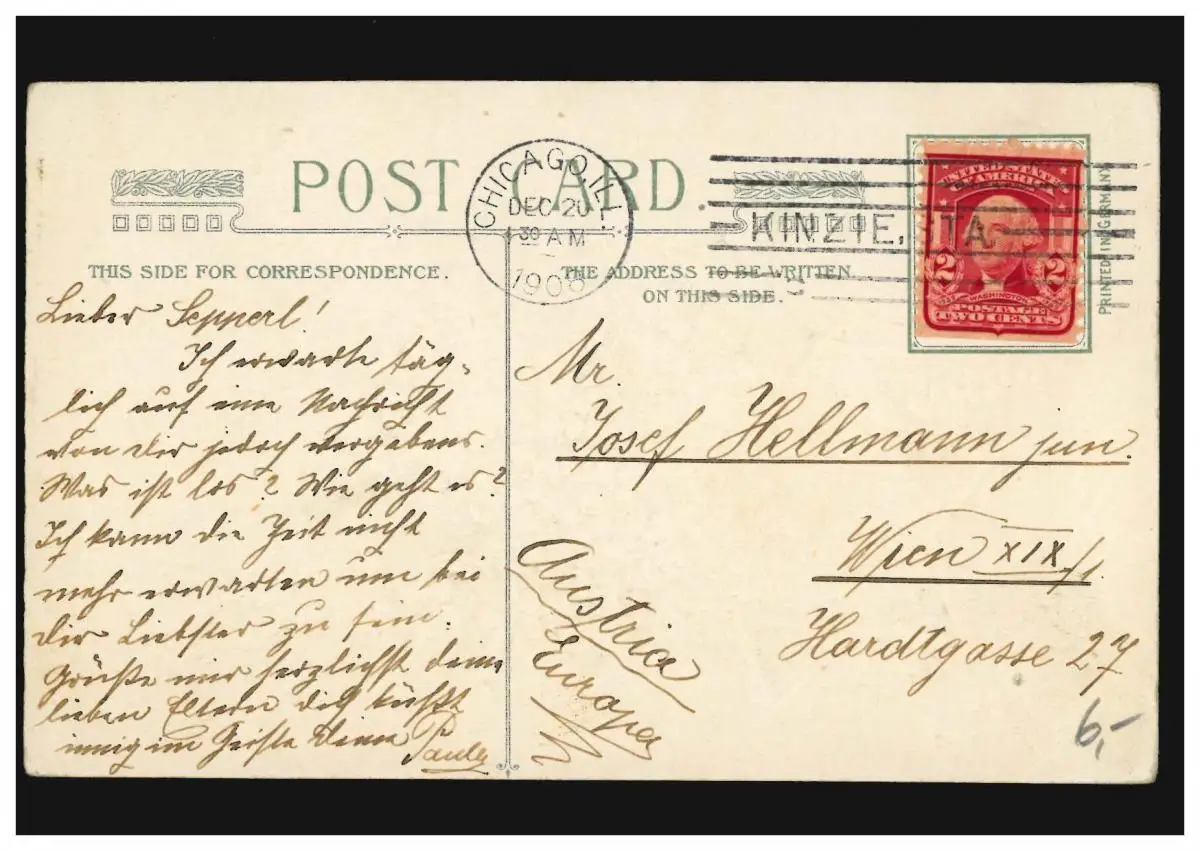 POST CARD.
CHICAGO, ILL.
DEC 20
4 30 AM
1908
KINZIE, STA.
UNITED STATES OF AMERICA
2 2
WASHINGTON
POSTAGE
TWO CENTS
PRINTED IN GERMANY
THIS SIDE FOR CORRESPONDENCE.
THE ADDRESS TO BE WRITTEN
ON THIS SIDE.
Lieber Sepperl!
Ich erwarte täg-
lich auf eine Nachricht
von dir jedoch vergebens.
Was ist los? Wie geht es?
Ich kann die Zeit nicht
mehr erwarten um bei
dir Liebster zu sein.
Grüße mir herzlichst deine
lieben Eltern dich küßt
innig im Geiste deine Paula
Mr.
Josef Hellmann jun.
Wien XIX/1.
Hardtgasse 27
Austria
Europa
6,-